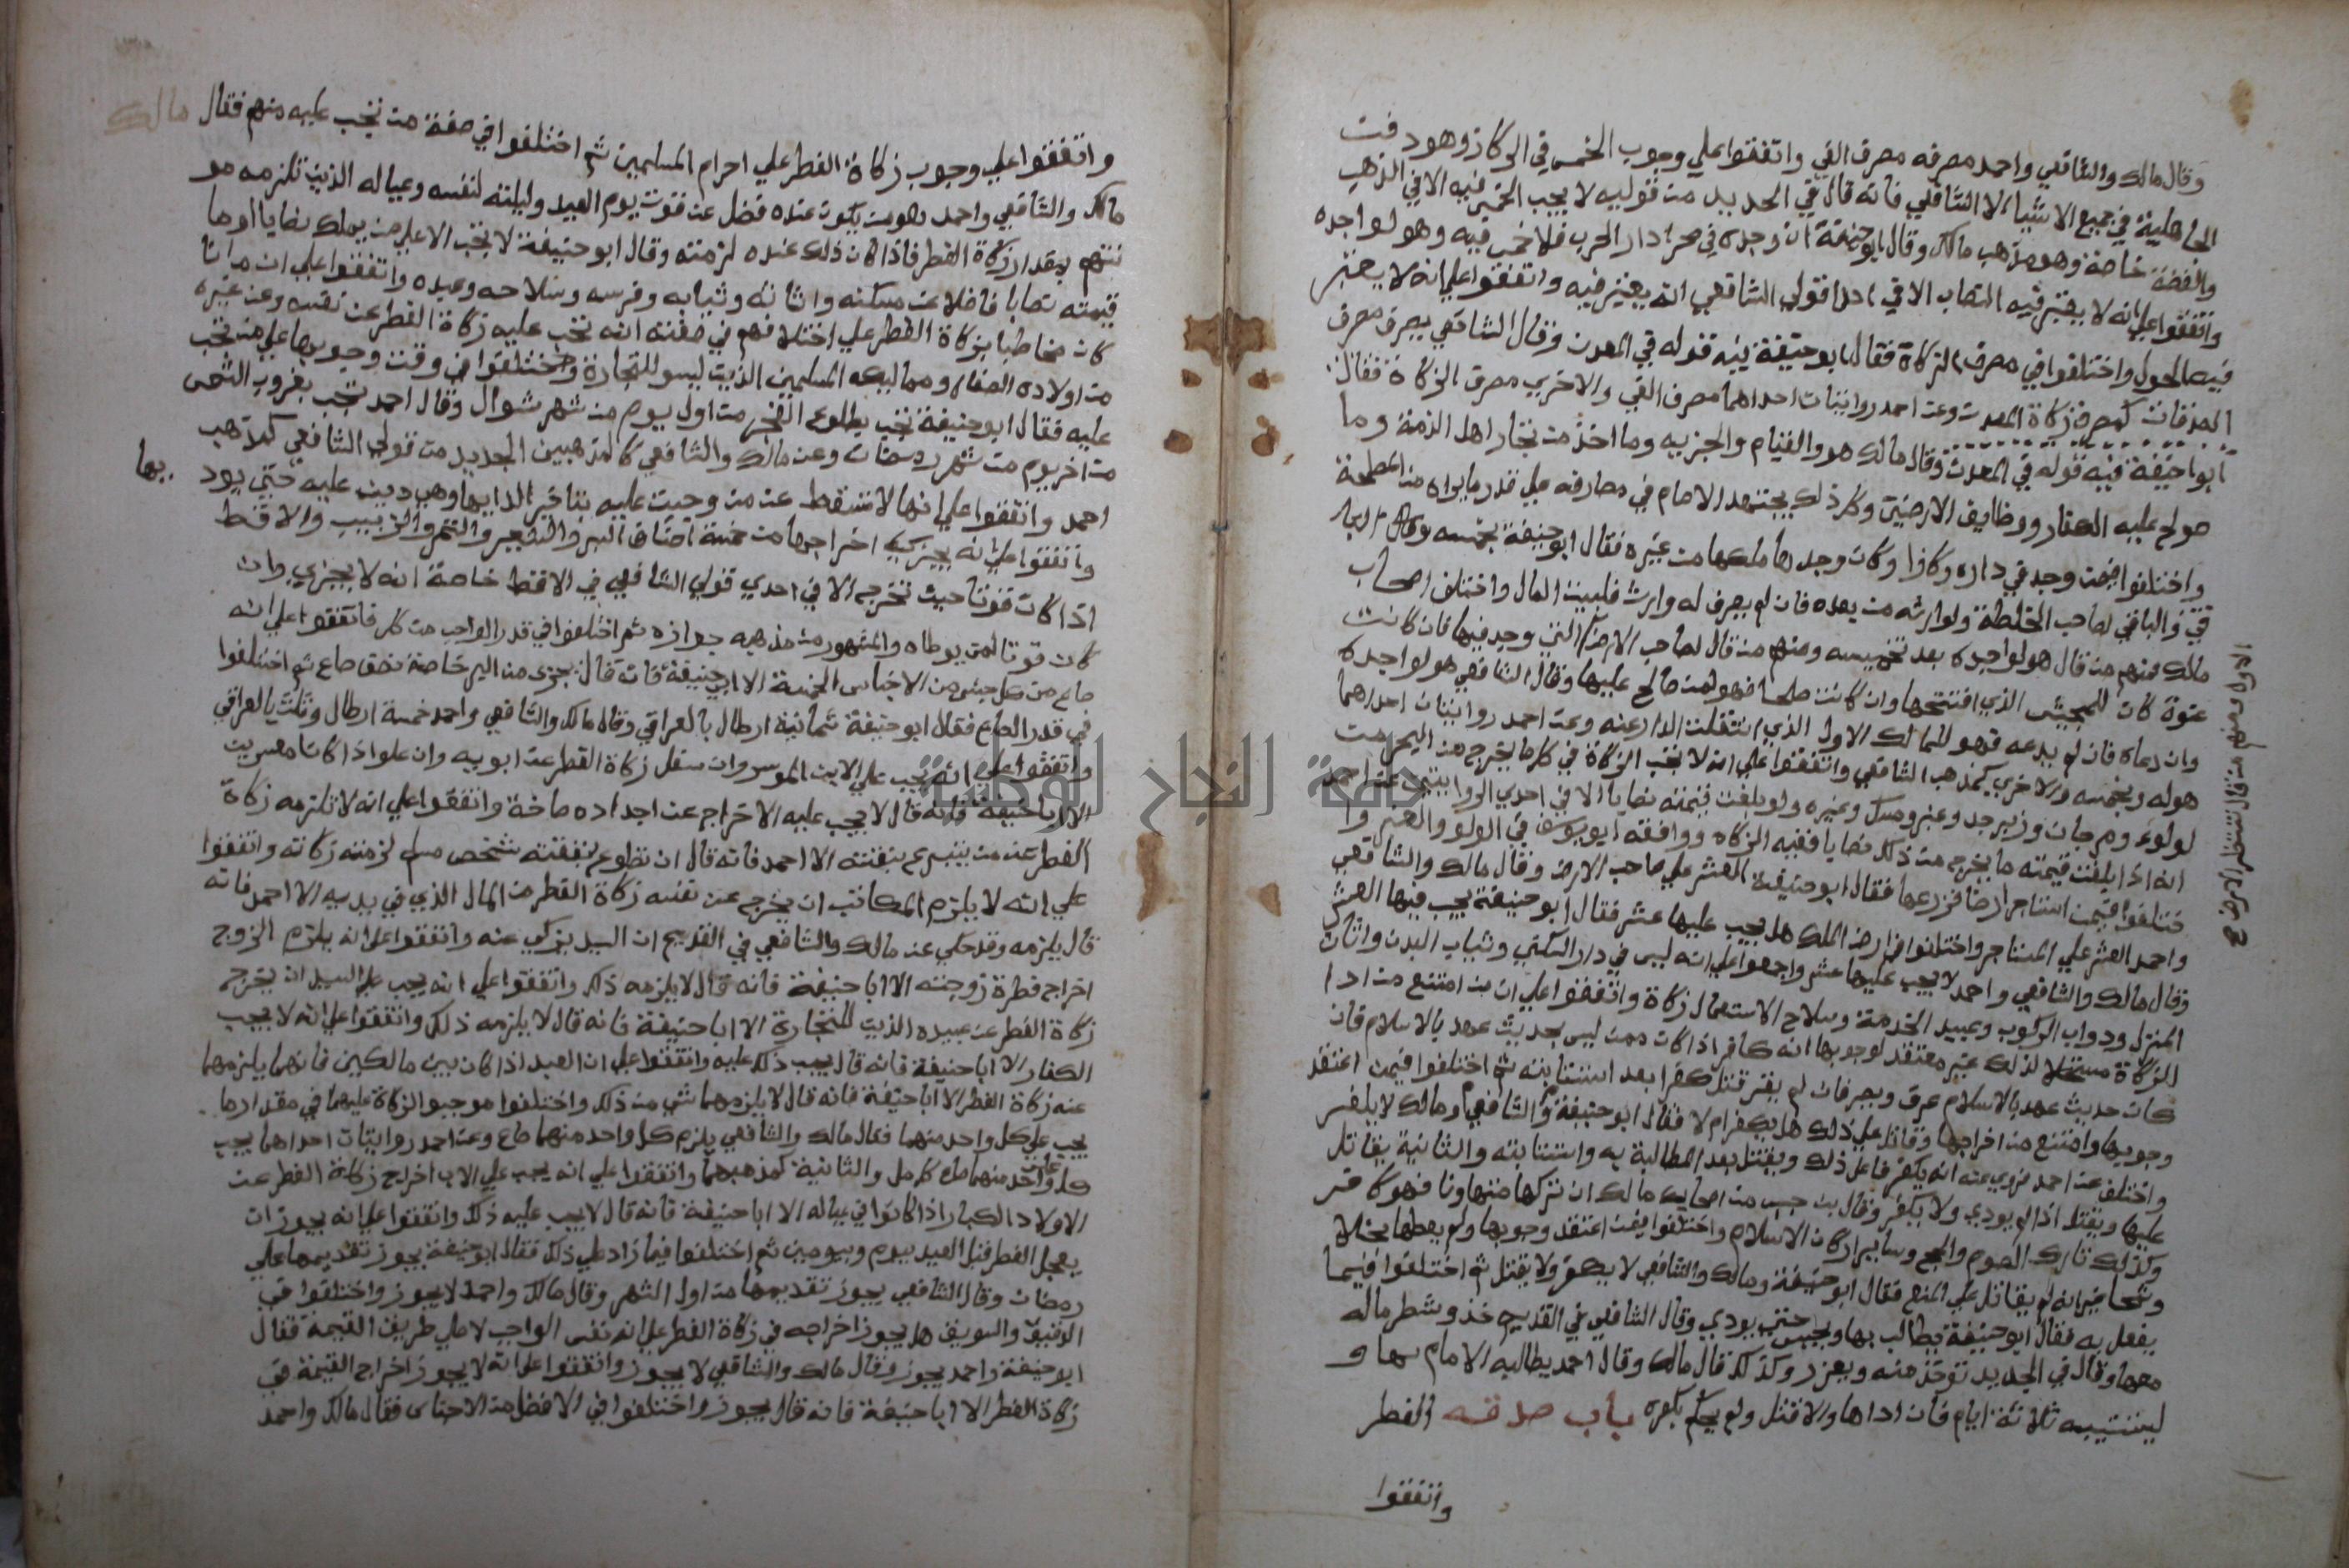 وقال مالك والشافعي واحمد مصرفه مصرف الفي واتفقوا علي وجوب الخمس في الركاز وهو دفن
الجاهلية في جميع الاشيا الا الشافعي فانه قال في الجديد من قوليه لا يجب الخمس فيه الا في الذهب
والفضة خاصة وهو مذهب مالك وقال ابو حنيفة ان وجده في صحرا دار الحرب فلا خمس فيه وهو لواجده
واتفقوا علي انه لا يعتبر فيه النصاب الا في احد اقولي الشافعي انه يعتبر فيه واتفقوا علي انه لا يعتبر
فيه الحول واختلفوا في مصرف الزكاة فقال ابو حنيفة فيه قوله في المعدن وقال الشافعي يصرف مصرف
وعن احمد روايتان احداهما مصرف الفي والاخري مصرف الزكاة فقال
ابوا حنيفة فيه قوله في المعدن وقال مالك هو والغنايم والجزيه وما اخذ من تجار اهل الذمة وما
صولح عليه الكفار ووظايف الارضين وكل ذلك يجتهد الامام في مصارفه علي قدر ما يراه من المصلحة
واختلفوا فيمن وجد في داره ركازا وكان وجدها ملكها من غيره فقال ابو حنيفة يخمسه
والباقي لصاحب الخطة ولوارثه من بعده فان لم يعرف له وارث فلبيت المال واختلف اصحاب
مالك فمنهم من قال هو لواجده بعد تخميسه ومنهم من قال لصاحب الارض التي وجد فيها فان كانت
عنوة كان للجيش الذي افتتحها وان كانت صلحا فهو لمن صالح عليها وقال الشافعي هو لواجده
وان ادعاه فان لم يدعه فهو للمالك الاول الذي انتقلت الدار عنه وعن احمد روايتان احداهما
هو له ويخمسه والاخري كمذهب الشافعي واتفقوا علي انه لا تجب الزكاة في كل ما يخرج من البحر من
لولوء ومرجان وزبرجد وعنبر ومسك وغيره ولو بلغت قيمته نصابا الا في احدي الروايتين عن احمد
انه اذا بلغت قيمته ما يخرج من ذلك نصابا ففيه الزكاه ووافقه ابو يوسف في اللولو والعنبر وا
ختلفوا فيمن استاجر ارضا فزرعها فقال ابو حنيفة العشر علي صاحب الارض وقال مالك والشافعي
واحمد العشر علي المستاجر واختلفوا في ارض الملك هل يجب عليها عشر فقال ابو حنيفة يجب فيها العشر
وقال مالك والشافعي واحمد لا يجب عليها عشر واجمعوا علي انه ليس في دار السكني وثياب البدن واثاث
المنزل ودواب الركوب وعبيد الخدمة وسلاح الاستعمال زكاة واتفقوا علي ان من امتنع من ادا
الزكاة مستحلا لذلك غير معتقد لوجوبها انه كافر اذا كان ممن ليس بحديث عهد بالاسلام فان
كان حديث عهد بالاسلام عرف وبصر فان لم يقر قتل كفرا بعد استتابته ثم اختلفوا فيمن اعتقد
وجوبها وامتنع من اخراجها وقاتل علي ذلك هل يكفر ام لا فقال ابو حنيفة والشافعي ومالك لا يكفر
واختلف عن احمد فروي عنه انه يكفر فاعل ذلك ويقتل بعد المطالبة به واستتابته والثانية يقاتل
عليها ويقتل اذا لم يودي ولا يكفر وقال بن حبيب من اصحاب مالك ان تركها متهاونا فهو كافر
وكذلك تارك الصوم والحج وساير اركان الاسلام واختلفوا فيمن اعتقد وجوبها ولم يعطها بخلا
وشحا غير انه لم يقاتل علي المنع فقال ابو حنيفة ومالك والشافعي لا يكفر ولا يقتل ثم اختلفوا فيما
يفعل به فقال ابو حنيفة يطالب بها ويحبس حتي يودي وقال الشافعي في القديم خذ وشطر ماله
معها وقال في الجديد توخذ منه ويعزر وكذلك قال مالك وقال احمد يطالبه الامام بها و
ليستتيبه ثلاثة ايام فان اداها والا قتل ولم يحكم بكفره باب صدقه الفطر
واتفقوا
الاول ومنهم من قال تنتظر الارض
واتفقوا علي وجوب زكاة الفطر علي احرام المسلمين ثم اختلفوا في صفة من تجب عليه منهم فقال مالك
مالك والشافعي واحمد هو من يكون عنده فضل عن قوت يوم العيد وليلته لنفسه وعياله الذين تلزمه مو
نتهم بمقدار زكاة الفطر فاذا كان ذلك عنده لزمته وقال ابو حنيفة لا تجب الا علي من يملك نصابا او ما
قيمته نصابا فاضلا عن مسكنه واثاثه وثيابه وفرسه وسلاحه وعبده واتفقوا علي ان من
كان مخاطبا بزكاة الفطر علي اختلافهم في صفته انه تجب عليه زكاة الفطر عن نفسه وعن غيره
من اولاده الصغار ومماليكه المسلمين الذين ليسو للتجارة واختلفوا في وقت وجوبها علي من تجب
عليه فقال ابو حنيفة تجب بطلوع الفجر من اول يوم من شهر شوال وقال احمد تجب بغروب الشمس
من اخر يوم من شهر رمضان وعن مالك والشافعي كالمذهبين الجديد من قولي الشافعي كمذهب
احمد واتفقوا علي انها لا تسقط عن من وجبت عليه بتاخير ادايها وهي دين عليه حتي يود يها
واتفقوا علي انه يجزيه اخراجها من خمسة اصناف البر والشعير والتمر والزبيب والاقط
اذا كان قوتا حيث تخرج الا في احدي قولي الشافعي في الاقط خاصة انه لا يجزي وان
كان قوتا لمن يوطاه والمشهور من مذهبه جوازه ثم اختلفوا في قدر الواجب من كل فاتفقوا علي انه
صاع من كل جنس من الاجناس الخمسة الا ابي حنيفة فانه قال يجزي من البر خاصة نصف صاع ثم اختلفوا
في قدر الصاع فقال ابو حنيفة ثمانية ارطال بالعراقي وقال مالك والشافعي واحمد خمسة ارطال وثلث بالعراقي
واتفقوا علي انه يجب علي الابن الموسر وان سفل زكاة الفطر عن ابويه وان علوا اذا كانا معسرين
الا ابا حنيفة فانه قال لا يجب عليه الاخراج عن اجداده خاصة واتفقوا علي انه لا تلزمه زكاة
الفطر عن من يتبرع بنفقته الا احمد فانه قال ان تطوع بنفقته شخص مسلم لزمته زكاته واتفقوا
علي انه لا يلزم المكاتب ان يخرج عن نفسه زكاة الفطر من المال الذي في يديه الا احمد فانه
قال يلزمه وقد حكي عن مالك والشافعي في القديم ان السيد يزكي عنه واتفقوا علي انه يلزم الزوج
اخراج فطرة زوجته الا ابا حنيفة فانه قال لا يلزمه ذلك واتفقوا علي انه يجب علي السيد ان يخرج
زكاة الفطر عن عبيده الذين للتجارة الا ابا حنيفة فانه قال لا يلزمه ذلك واتفقوا علي انه لا يجب
الكفار الا ابا حنيفة فانه قال يجب ذلك عليه واتفقوا علي ان العبد اذا كان بين مالكين فانهما يلزمهما
عنه زكاة الفطر الا ابا حنيفة فانه قال لا يلزمهما شي من ذلك واختلفوا موجبوا الزكاة عليهما في مقدار ما
يجب علي كل واحد منهما فقال مالك والشافعي يلزم كل واحد منهما صاع وعن احمد روايتان احداهما يجب
علي كل واحد منهما صاع كامل والثانية كمذهبهما واتفقوا علي انه يجب علي الاب اخراج زكاة الفطر عن
الاولاد الكبار اذا كانوا في عياله الا ابا حنيفة فانه قال لا يجب عليه ذلك واتفقوا علي انه يجوز ان
يعجل الفطر قبل العيد بيوم وبيومين ثم اختلفوا فيما زاد علي ذلك فقال ابو حنيفة يجوز تقديمها علي
رمضان وقال الشافعي يجوز تقديمها من اول الشهر وقال مالك واحمد لا يجوز واختلفوا في
الدقيق والسويق هل يجوز اخراجه في زكاة الفطر علي انه نفس الواجب لا علي طريق القيمة فقال
ابو حنيفة واحمد يجوز وقال مالك والشافعي لا يجوز واتفقوا علي انه لا يجوز اخراج القيمة في
زكاة الفطر الا ابا حنيفة فانه قال يجوز واختلفوا في الافضل من الاجناس فقال مالك واحمد
جامعة النجاح الوطنية